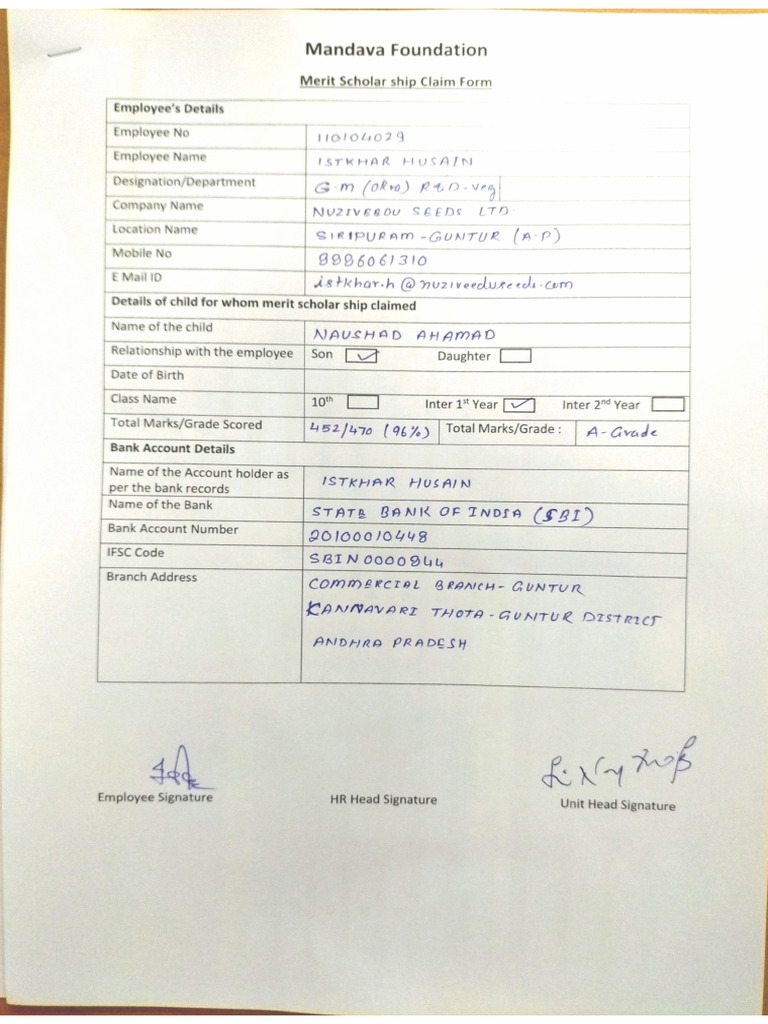 Mandava Foundation
Merit Scholar ship Claim Form
Employee's Details
Employee No 110104029
Employee Name ISTKHAR HUSAIN
Designation/Department G.M (OKra) R&D-Veg
Company Name NUZIVEEDU SEEDS LTD.
Location Name SIRIPURAM-GUNTUR (A.P)
Mobile No 8886061310
E Mail ID istkhar.h@nuziveeduseeds.com
Details of child for whom merit scholar ship claimed
Name of the child NAUSHAD AHAMAD
Relationship with the employee Son ✓ Daughter
Date of Birth
Class Name 10th Inter 1st Year ✓ Inter 2nd Year
Total Marks/Grade Scored 452/470 (96%) Total Marks/Grade : A-Grade
Bank Account Details
Name of the Account holder as ISTKHAR HUSAIN
per the bank records
Name of the Bank STATE BANK OF INDIA (SBI)
Bank Account Number 20100010448
IFSC Code SBIN0000844
Branch Address COMMERCIAL BRANCH-GUNTUR
KANNAVARI THOTA-GUNTUR DISTRICT
ANDHRA PRADESH
Employee Signature HR Head Signature Unit Head Signature